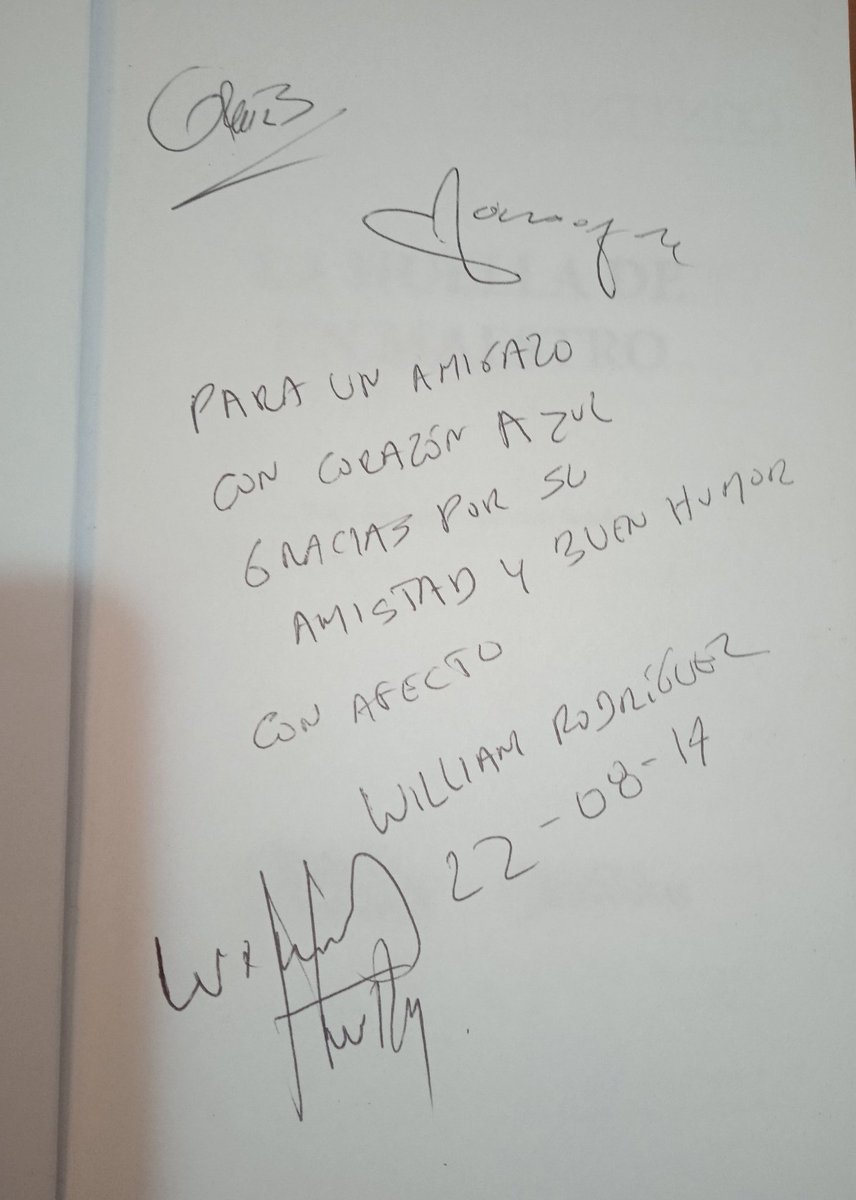 PARA UN AMIGAZO
CON CORAZÓN AZUL
GRACIAS POR SU
AMISTAD Y BUEN HUMOR
CON AFECTO
WILLIAM RODRÍGUEZ
22-08-14